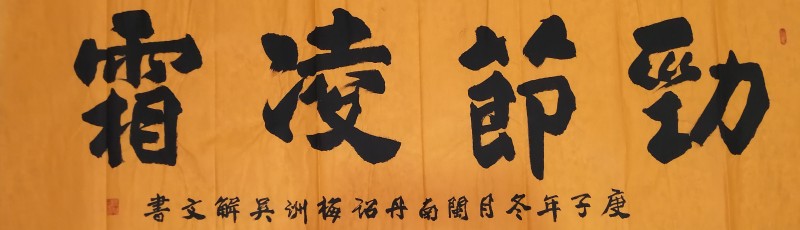 勁節凌霜
庚子年冬月閩南丹詔梅洲吳解文書